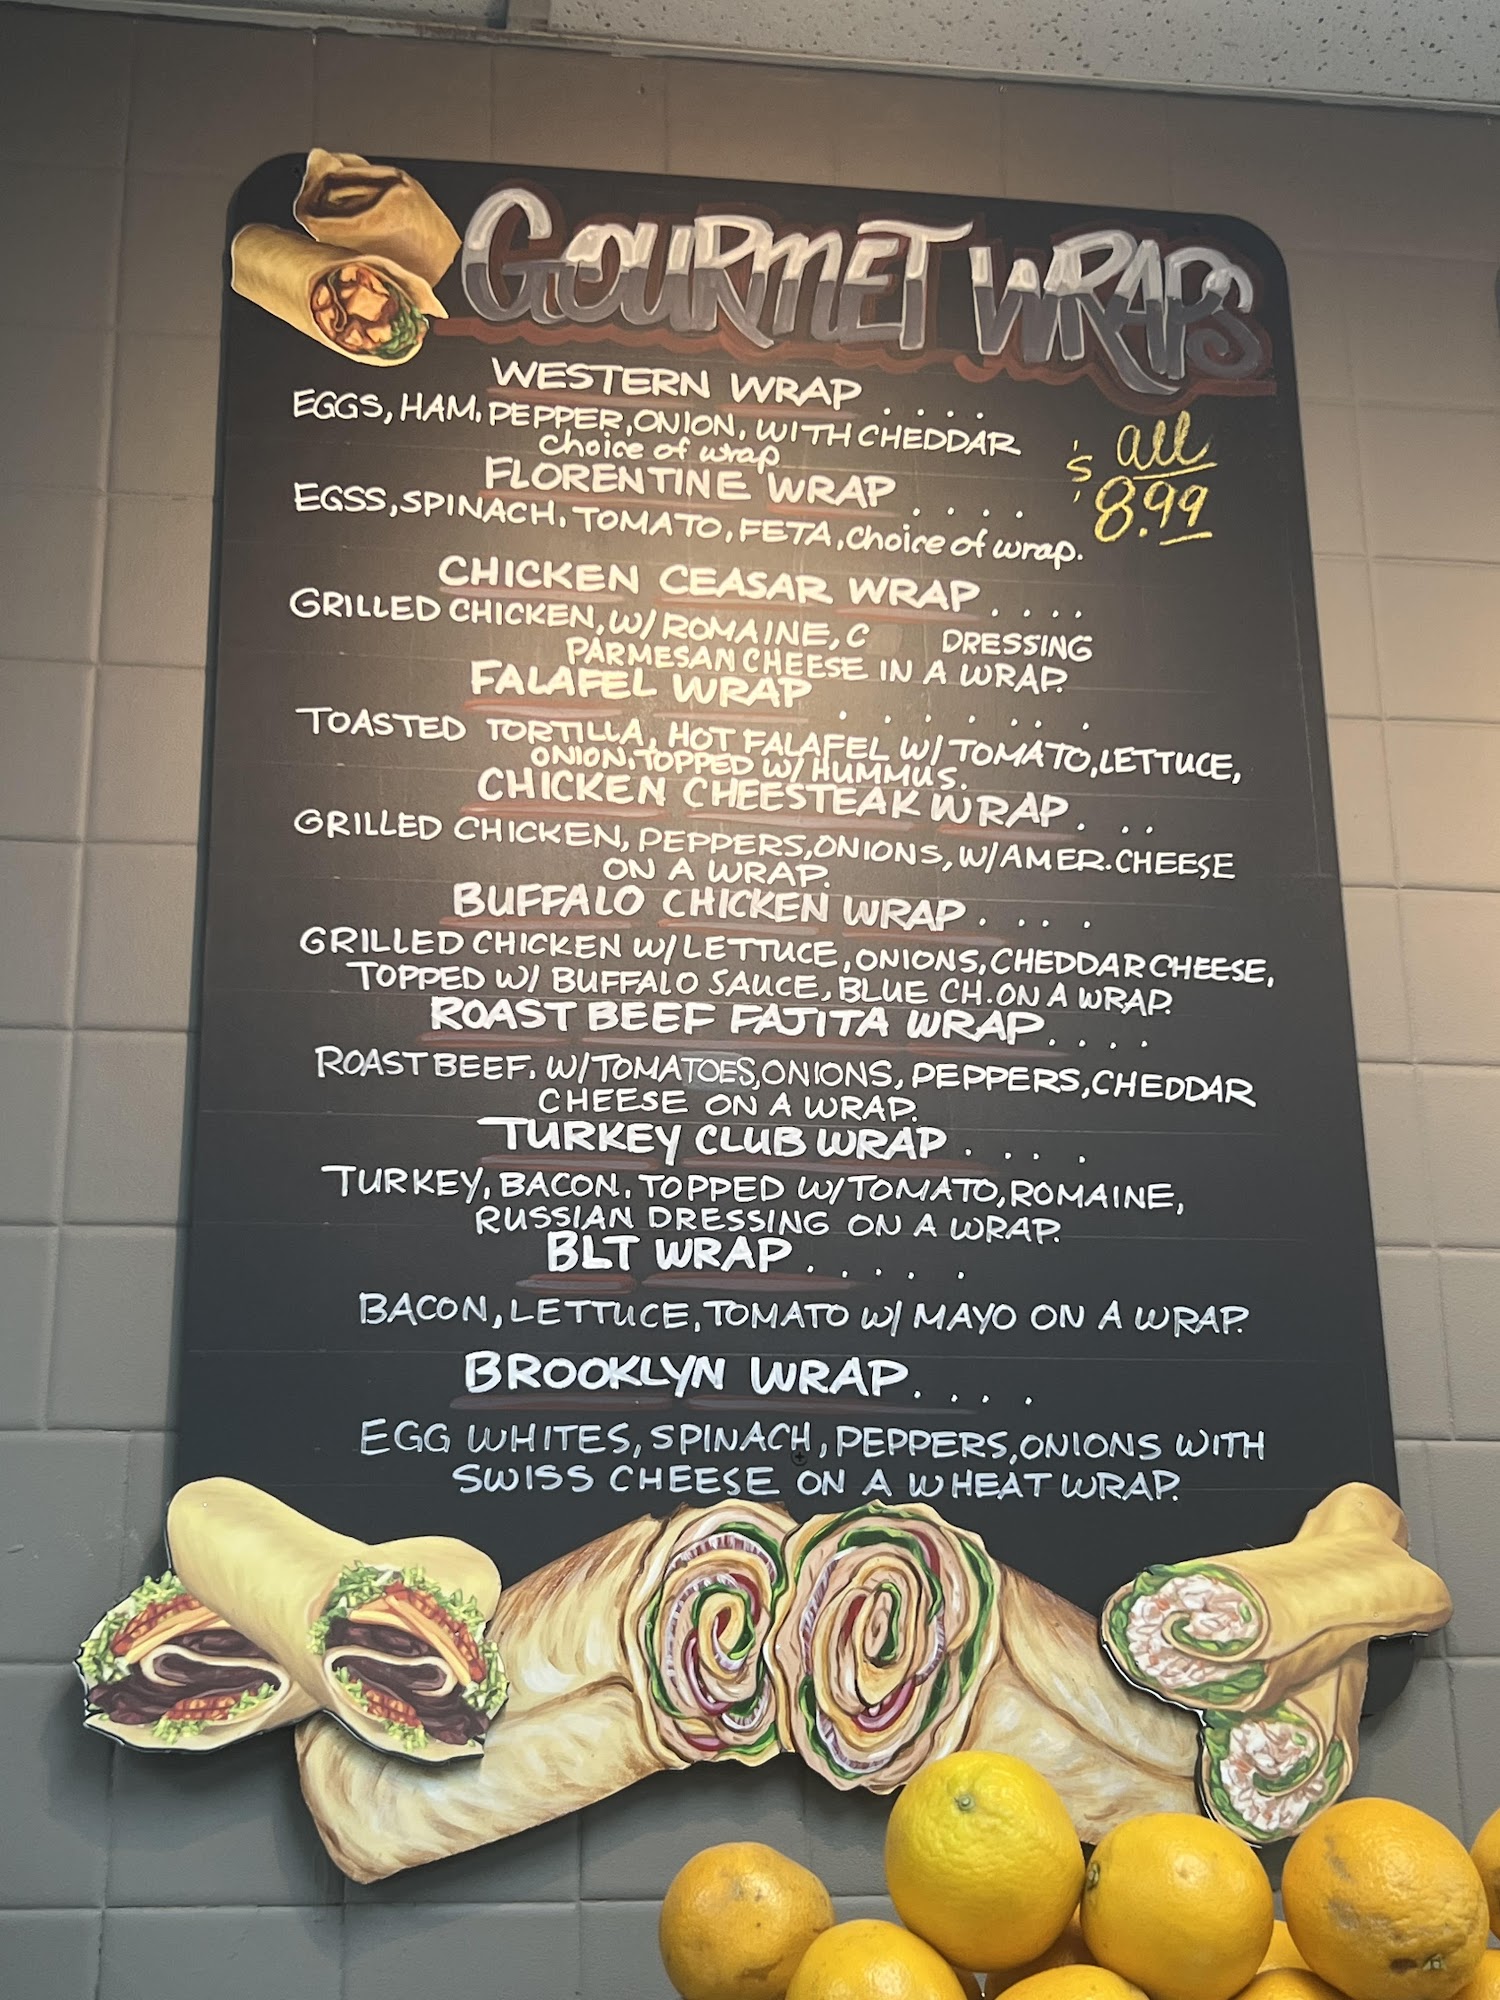 GOURMET WRAPS
WESTERN WRAP ....
EGGS, HAM, PEPPER, ONION, WITH CHEDDAR
Choice of wrap
all
$ 8.99
FLORENTINE WRAP ....
EGSS, SPINACH, TOMATO, FETA, Choice of wrap.
CHICKEN CEASAR WRAP ....
GRILLED CHICKEN, W/ ROMAINE, C DRESSING
PARMESAN CHEESE IN A WRAP.
FALAFEL WRAP .......
TOASTED TORTILLA, HOT FALAFEL W/ TOMATO, LETTUCE,
ONION. TOPPED W/ HUMMUS.
CHICKEN CHEESTEAK WRAP ...
GRILLED CHICKEN, PEPPERS, ONIONS, W/ AMER. CHEESE
ON A WRAP.
BUFFALO CHICKEN WRAP ....
GRILLED CHICKEN W/ LETTUCE, ONIONS, CHEDDAR CHEESE,
TOPPED W/ BUFFALO SAUCE, BLUE CH. ON A WRAP.
ROAST BEEF FAJITA WRAP ....
ROAST BEEF, W/ TOMATOES, ONIONS, PEPPERS, CHEDDAR
CHEESE ON A WRAP.
TURKEY CLUB WRAP ....
TURKEY, BACON, TOPPED W/ TOMATO, ROMAINE,
RUSSIAN DRESSING ON A WRAP.
BLT WRAP .....
BACON, LETTUCE, TOMATO W/ MAYO ON A WRAP.
BROOKLYN WRAP ....
EGG WHITES, SPINACH, PEPPERS, ONIONS WITH
SWISS CHEESE ON A WHEAT WRAP.